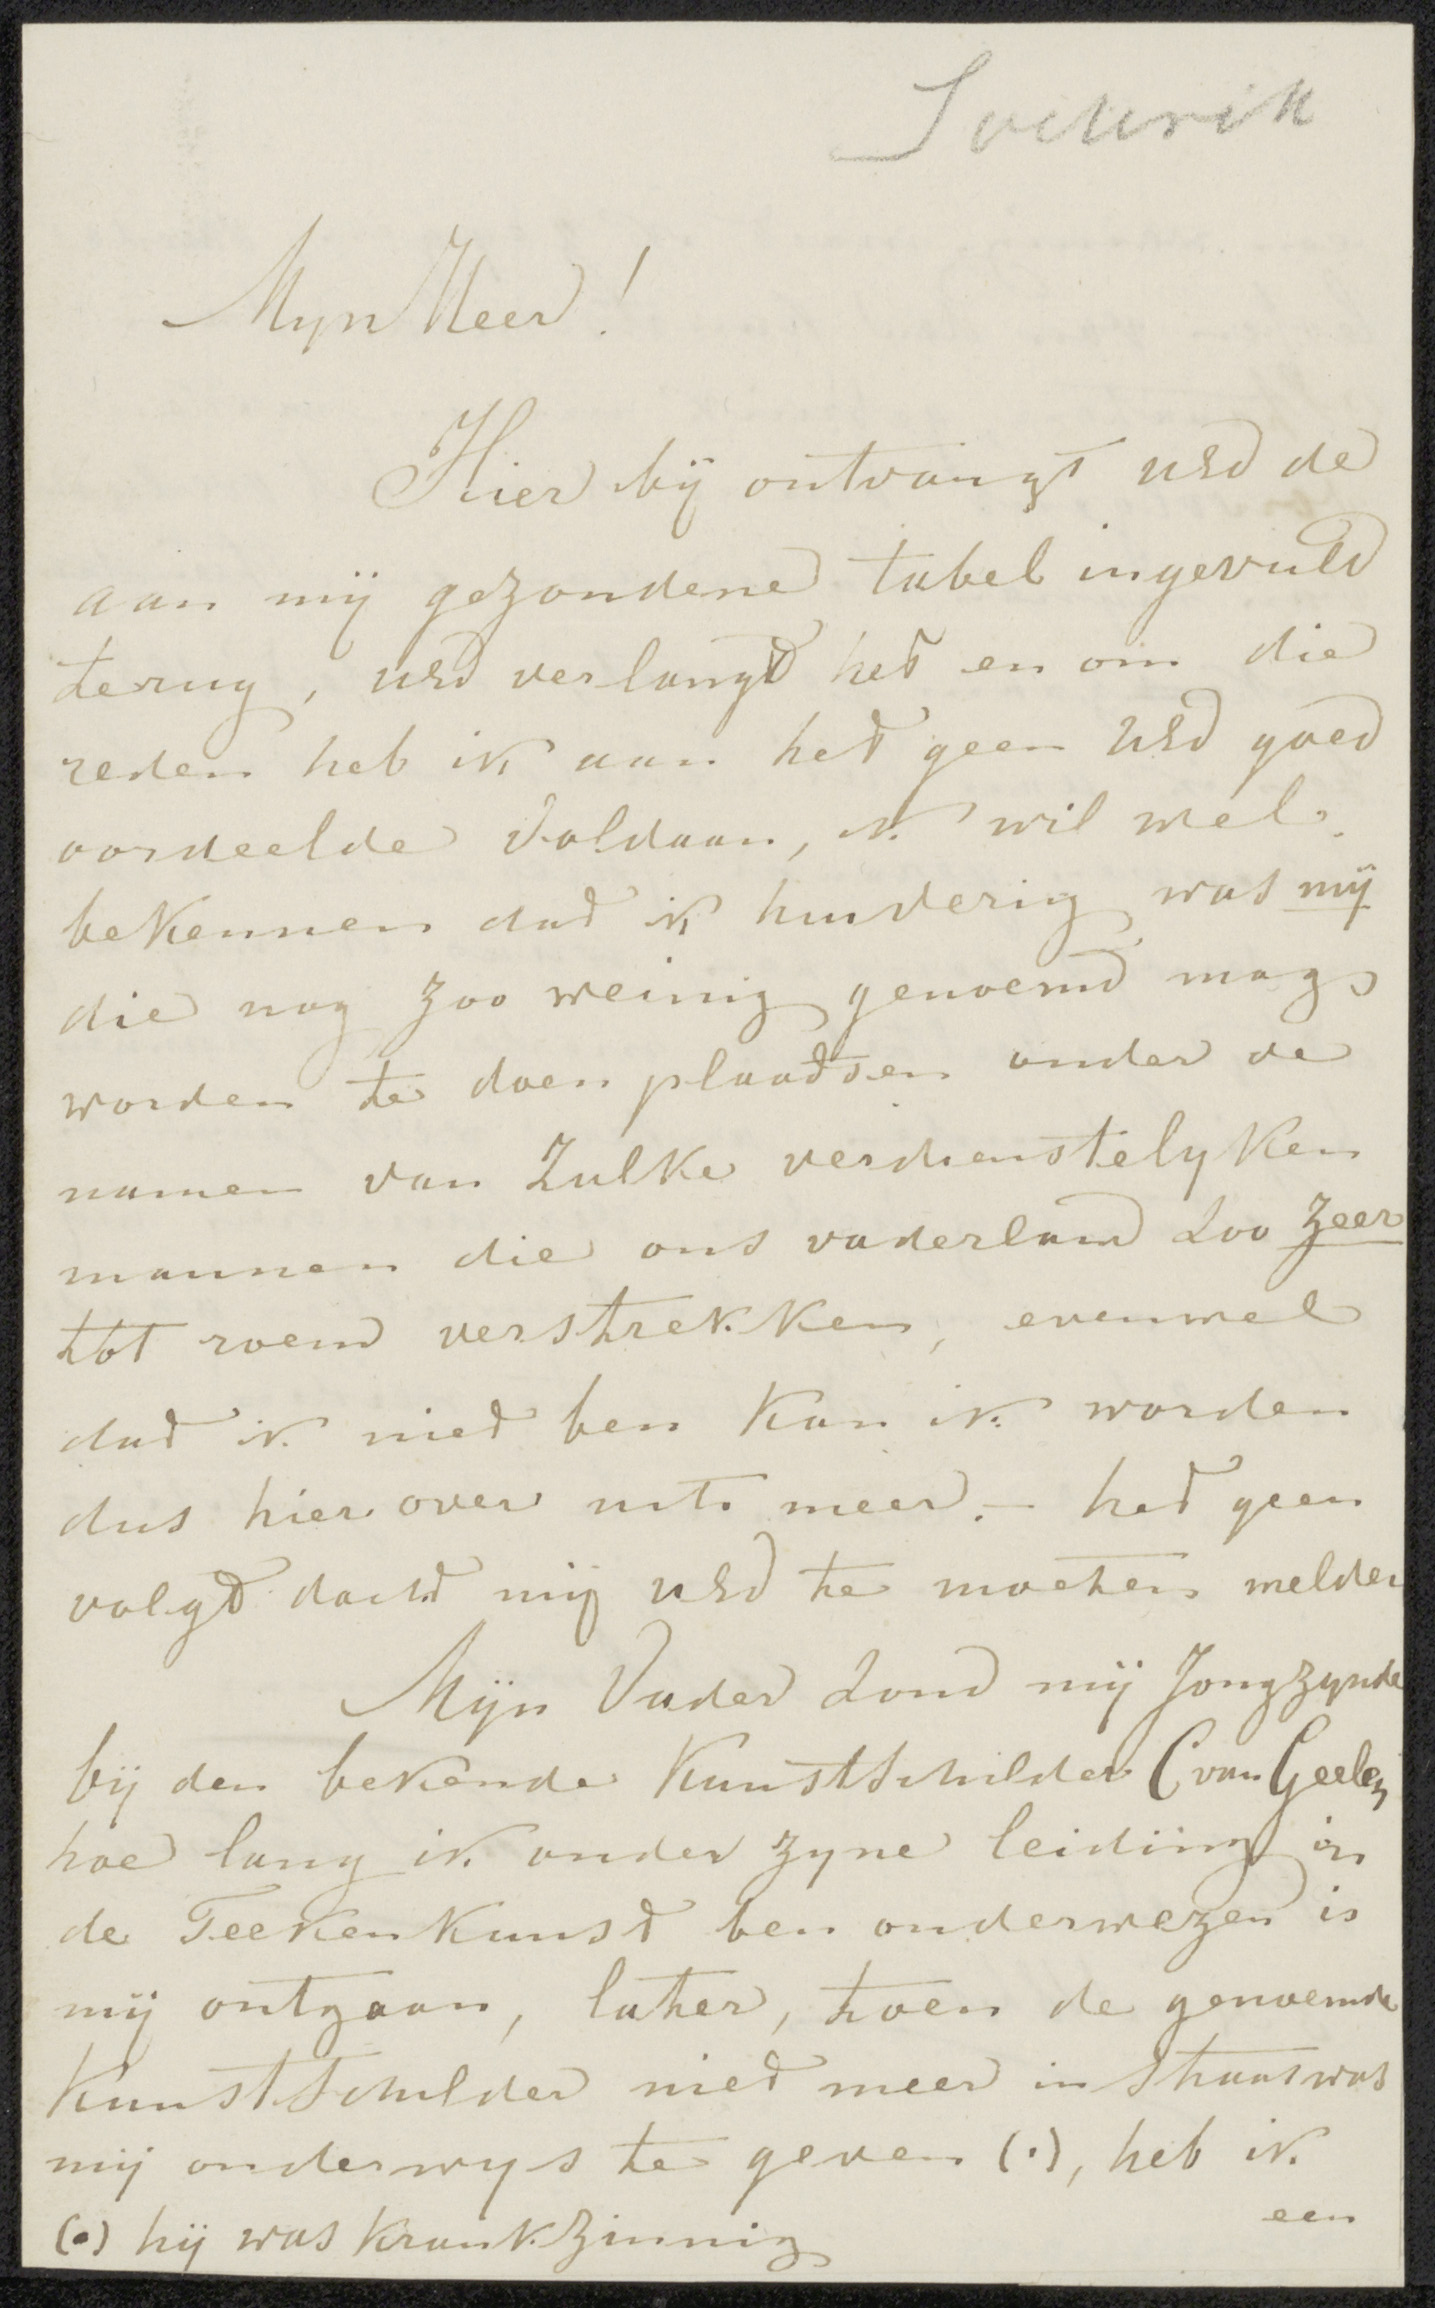 Sochrik
Myn Heer!
Hier bij ontvangt UEd de
aan mij gezondene tabel ingevuld
terug, UEd verlangd het en om die
reden heb ik aan het geen UEd goed
oordeelde Voldaan, ik wil wel
bekennen dat ik huiverig was mij
die nog zoo weinig genoemd mag
worden te doen plaatsen onder de
namen van Zulke verdienstelyken
mannen die ons vaderland Zoo Zeer
tot roem verstrekken, evenwel
dat ik niet ben Kan ik worden
dus hier over nits meer. – het geen
volgt dacht mij UEd te moeten melden
Mijn Vader Zond mij Jong zynde
bij den bekende Kunstschilder C van Geelen
hoe lang ik onder zyne leiding in
de Teekenkunst ben onderwezen is
mij ontgaan, later, toen de genoemde
Kunstschilder niet meer in staat was
mij onderwys te geven (•), heb ik
een
(•) hij was Krankzinnig